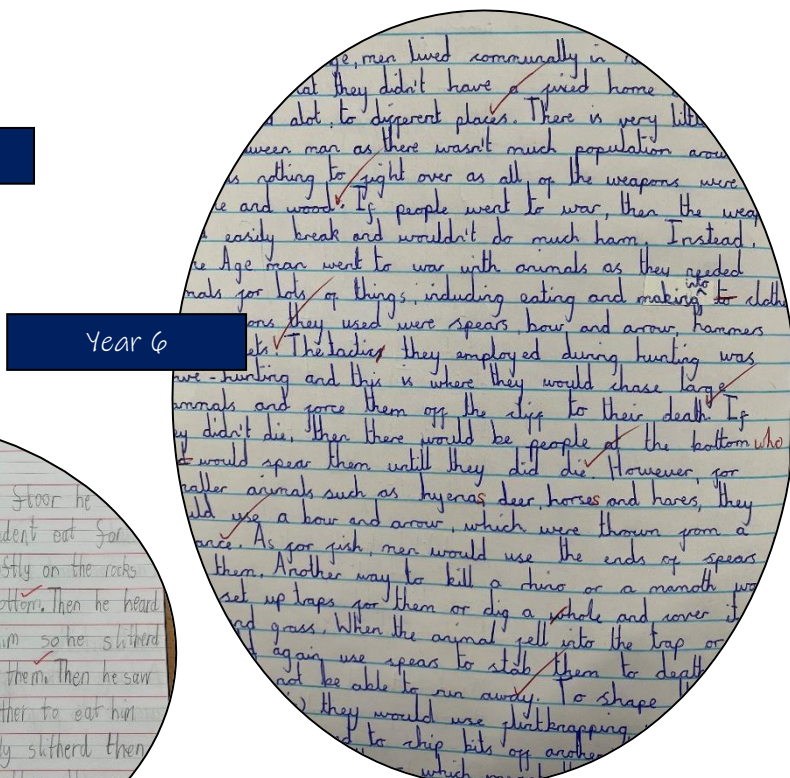 ge, men lived communally in
at they didn't have a fixed home
alot, to different places. There is very littl
ween man as there wasn't much population arou
is nothing to fight over as all of the weapons were
e and wood. If people went to war, then the weap
easily break and wouldn't do much harm. Instead,
e Age man went to war with animals as they needed
mals for lots of things, including eating and making into to clothe
ons they used were spears, bow and arrow, hammers
Year 6
ets. The tactics they employed during hunting was
ve-hunting and this is where they would chase large
ammals and force them off the cliff to their death. If
ey didn't die, then there would be people at the bottom who
would spear them untill they did die. However, for
maller animals such as hyenas deer, horses and hares, they
uld use a bow and arrow, which were thrown from a
ance. As for fish, men would use the ends of spears
them. Another way to kill a rhino or a mamoth
set up traps for them or dig a whole and cover it
nd grass. When the animal fell into the trap or
again use spears to stab them to death
not be able to run away. To shape
they would use flintknapping
to chip bits off another
which
floor he
dent eat for
stly on the rocks
ottom. Then he heard
im so he slitherd
them. Then he saw
ther to eat him
ly slitherd then